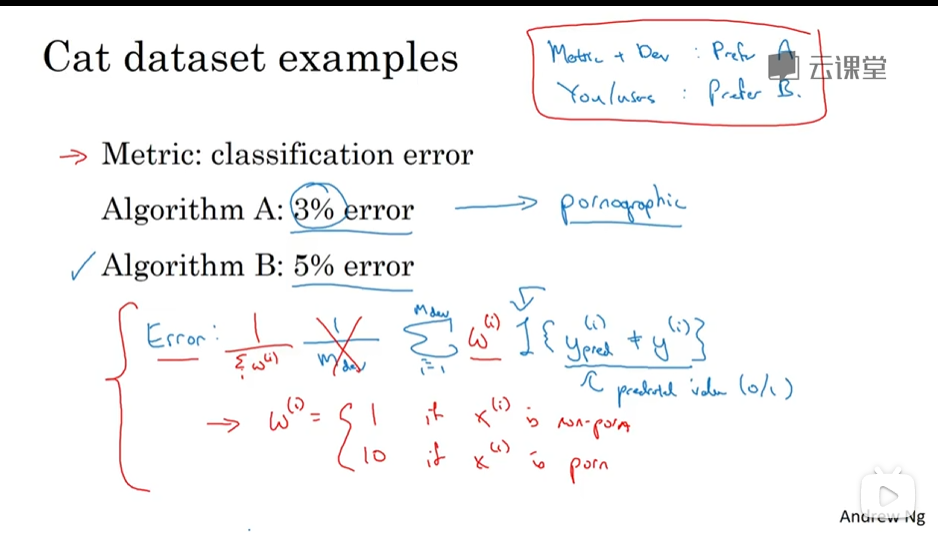 Cat dataset examples
Metric + Dev : Prefer A
You/users : Prefer B.
云课堂
→ Metric: classification error
Algorithm A: 3% error → pornographic
✓ Algorithm B: 5% error
Error: 1/Σw⁽ⁱ⁾ 1/m_dev Σ_{i=1}^{m_dev} w⁽ⁱ⁾ 1{y_pred⁽ⁱ⁾ ≠ y⁽ⁱ⁾}
predicted value (0/1)
→ w⁽ⁱ⁾ = { 1 if x⁽ⁱ⁾ is non-porn
10 if x⁽ⁱ⁾ is porn
Andrew Ng